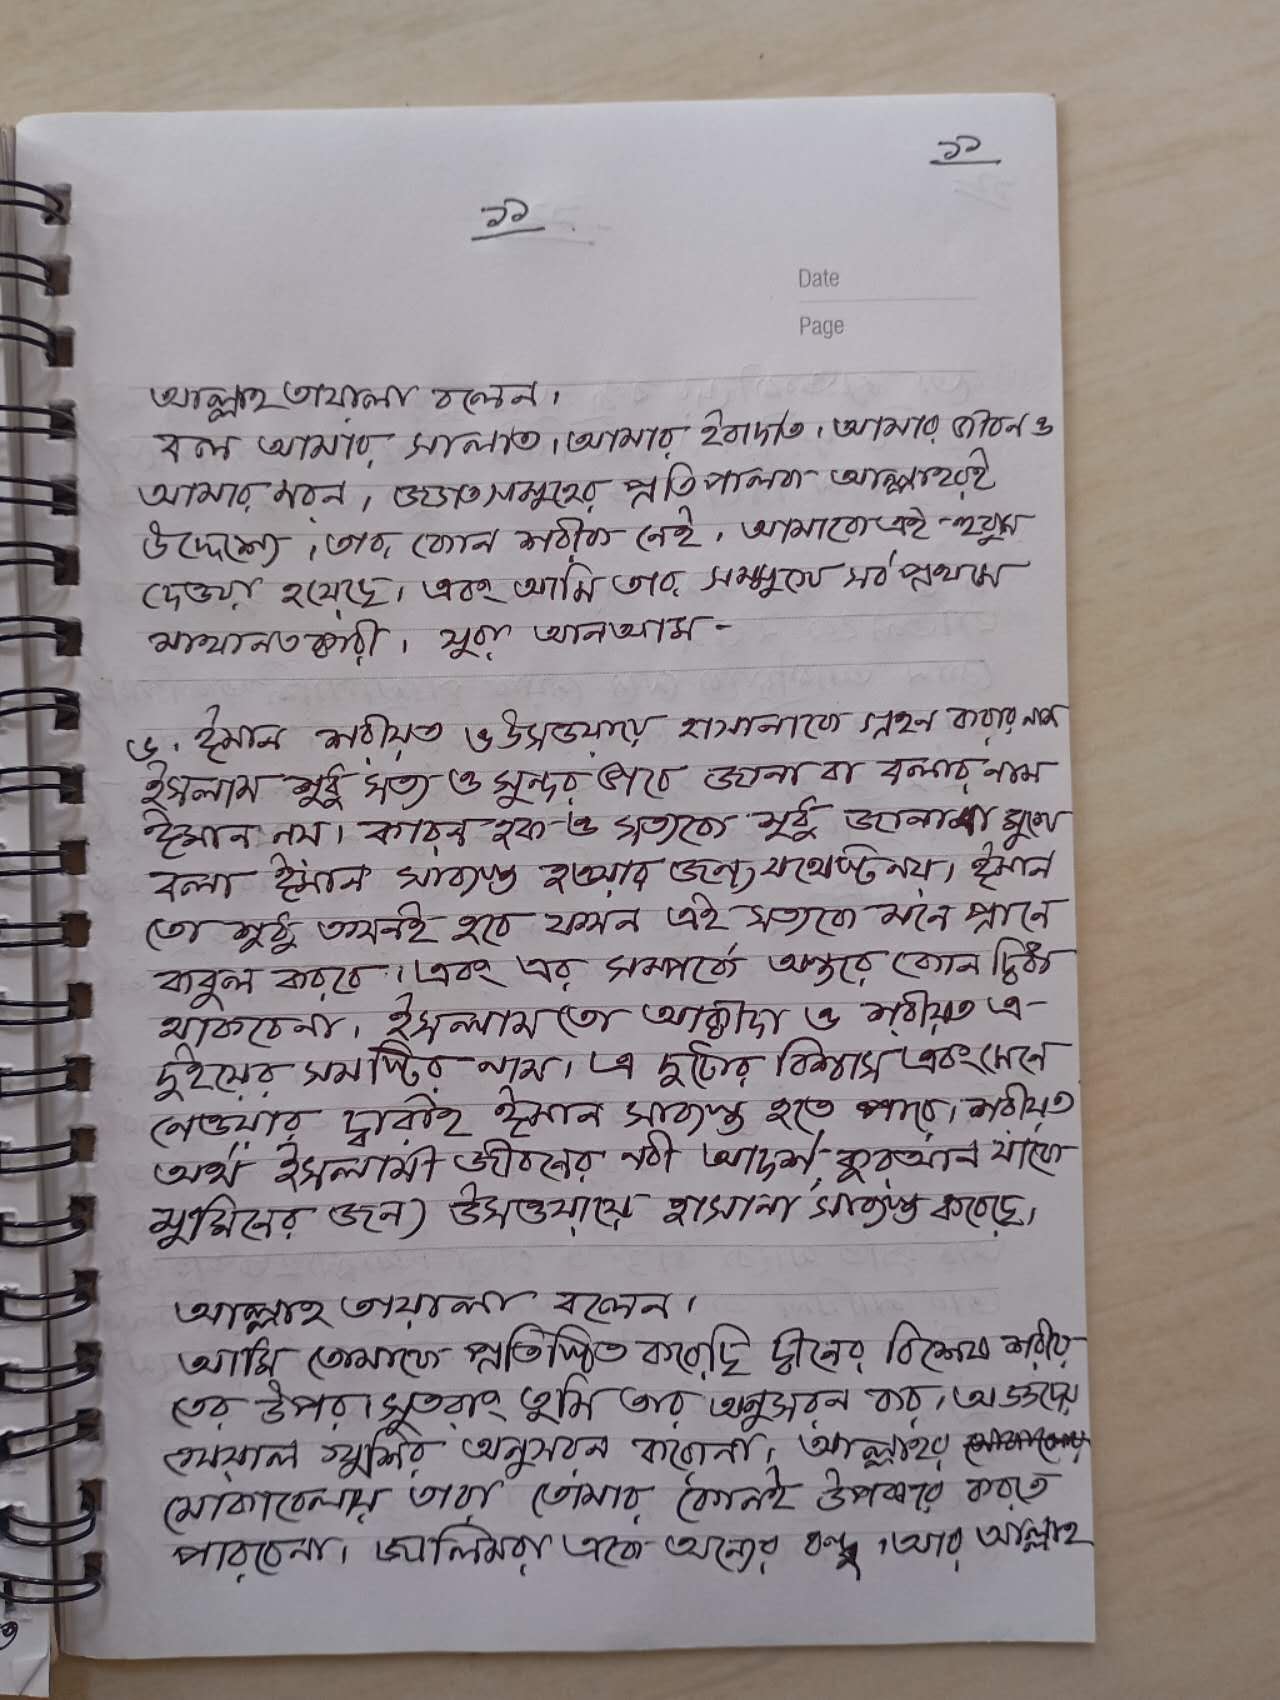 ১১
১১
Date
Page
আল্লাহ তায়ালা বলেন।
বল আমার সালাত, আমার ইবাদাত, আমার জীবন ও
আমার মরন, জগতসমূহের প্রতিপালক আল্লাহরই
উদ্দেশ্যে, তার কোন শরীক নেই, আমাকে এই হুকুম
দেওয়া হয়েছে, এবং আমি তার সম্মুখে সর্বপ্রথমে
মাথানতকারী, সূরা আনআম-
৬. ঈমান শরীয়ত ও উসওয়ায়ে হাসানাকে গ্রহন করার নাম
ইসলাম শুধু সত্য ও সুন্দর ভাবে জানা বা বলার নাম
ঈমান নয়। কারন হক ও সত্যকে শুধু জানা বা মুখে
বলা ঈমান সাব্যস্ত হওয়ার জন্য যথেষ্ট নয়, ঈমান
তো শুধু তখনই হবে যখন এই সত্যকে মনে প্রানে
কবুল করবে, এবং এর সম্পর্কে অন্তরে কোন দ্বিধা
থাকবেনা, ইসলাম তো আক্বীদা ও শরীয়ত এ-
দুইয়ের সমষ্টির নাম। এ দুটোর বিশ্বাস এবং মেনে
নেওয়ার দ্বারাই ঈমান সাব্যস্ত হতে পারে, শরীয়ত
অর্থ ইসলামী জীবনের নবী আদর্শ, কুরআন যাকে
মুমিনের জন্য উসওয়ায়ে হাসানা সাব্যস্ত করেছে,
আল্লাহ তায়ালা বলেন।
আমি তোমাকে প্রতিষ্ঠিত করেছি দ্বীনের বিশেষ শরীয়
তের উপর, সুতরাং তুমি তার অনুসরন কর, অজ্ঞদের
খেয়াল খুশির অনুসরন করোনা, আল্লাহর
মোকাবেলায় তারা তোমার কোনই উপকার করতে
পারবেনা, জালিমরা একে অন্যের বন্ধু, আর আল্লাহ